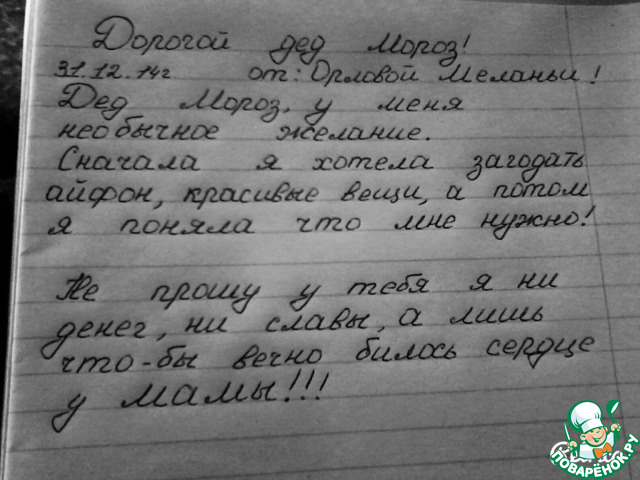 Дорогой дед Мороз!
31.12.14г от: Орловой Меланьи!
Дед Мороз, у меня
необычное желание.
Сначала я хотела загодать
айфон, красивые вещи, а потом
я поняла что мне нужно!
Не прошу у тебя я ни
денег, ни славы, а лишь
что-бы вечно билось сердце
у мамы!!!
ПОВАРЁНОК.РУ